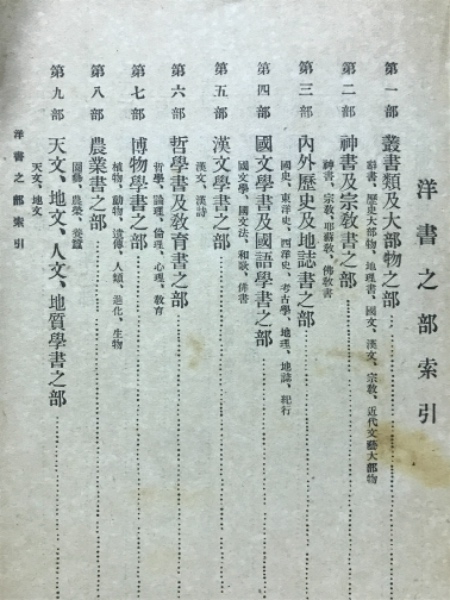 洋書之部索引
第一部 叢書類及大部物之部
辭書、歷史大部物、地理書、國文、漢文、宗敎、近代文藝大部物
第二部 神書及宗敎書之部
神書、宗敎、耶蘇敎、佛敎書
第三部 內外歷史及地誌書之部
國史、東洋史、西洋史、考古學、地理、地誌、紀行
第四部 國文學書及國語學書之部
國文學、國文法、和歌、俳書
第五部 漢文學書之部
漢文、漢詩
第六部 哲學書及敎育書之部
哲學、論理、倫理、心理、敎育
第七部 博物學書之部
植物、動物、遺傳、人類、進化、生物
第八部 農業書之部
園藝、農榮、養蠶
第九部 天文、地文、人文、地質學書之部
天文、地文
洋書之部索引